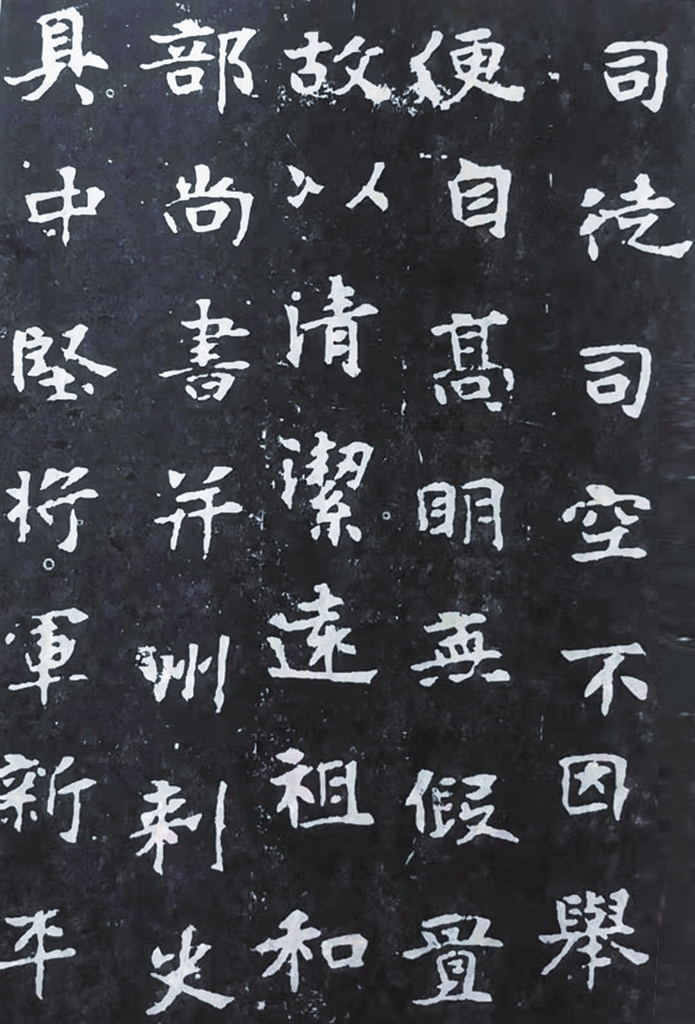 司徒司空不因舉
便自髙明無假置
故以清潔遠祖和
部尚書并州刺史
具中堅將軍新平